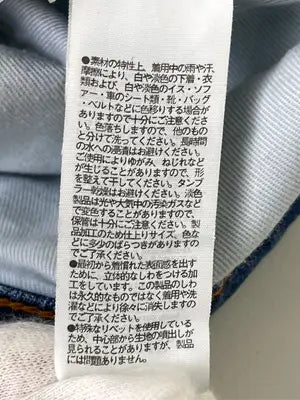 ●素材の特性上、着用中の雨や汗、
摩擦により、白や淡色の下着・衣
類および、白や淡色のイス・ソフ
ァー・車のシート類・靴・バッグ
・ベルトなどに色移りする場合が
ありますので十分にご注意くださ
い。色落ちしますので、他のもの
と分けて洗ってください。長時間
の水への浸漬はお避けください。
ご使用によりゆがみ、ねじれなど
が生じることがありますので、形
を整えて干してください。タンブ
ラー乾燥はお避けください。淡色
製品は光や大気中の汚染ガスなど
で変色することがありますので、
保管は十分にご注意ください。製
品加工のため仕上りサイズ、色な
どに多少のばらつきがありますの
でご了承ください。
●最初から着慣れた表情感を出す
ために、立体的なしわをつける加
工をしています。この製品のしわ
は永久的なものではなく着用や洗
濯などにより徐々に消失しますの
でご了承ください。
●特殊なリベットを使用している
ため、中心部から生地の噴出しが
見られることがありますが、製品
には問題ありません。